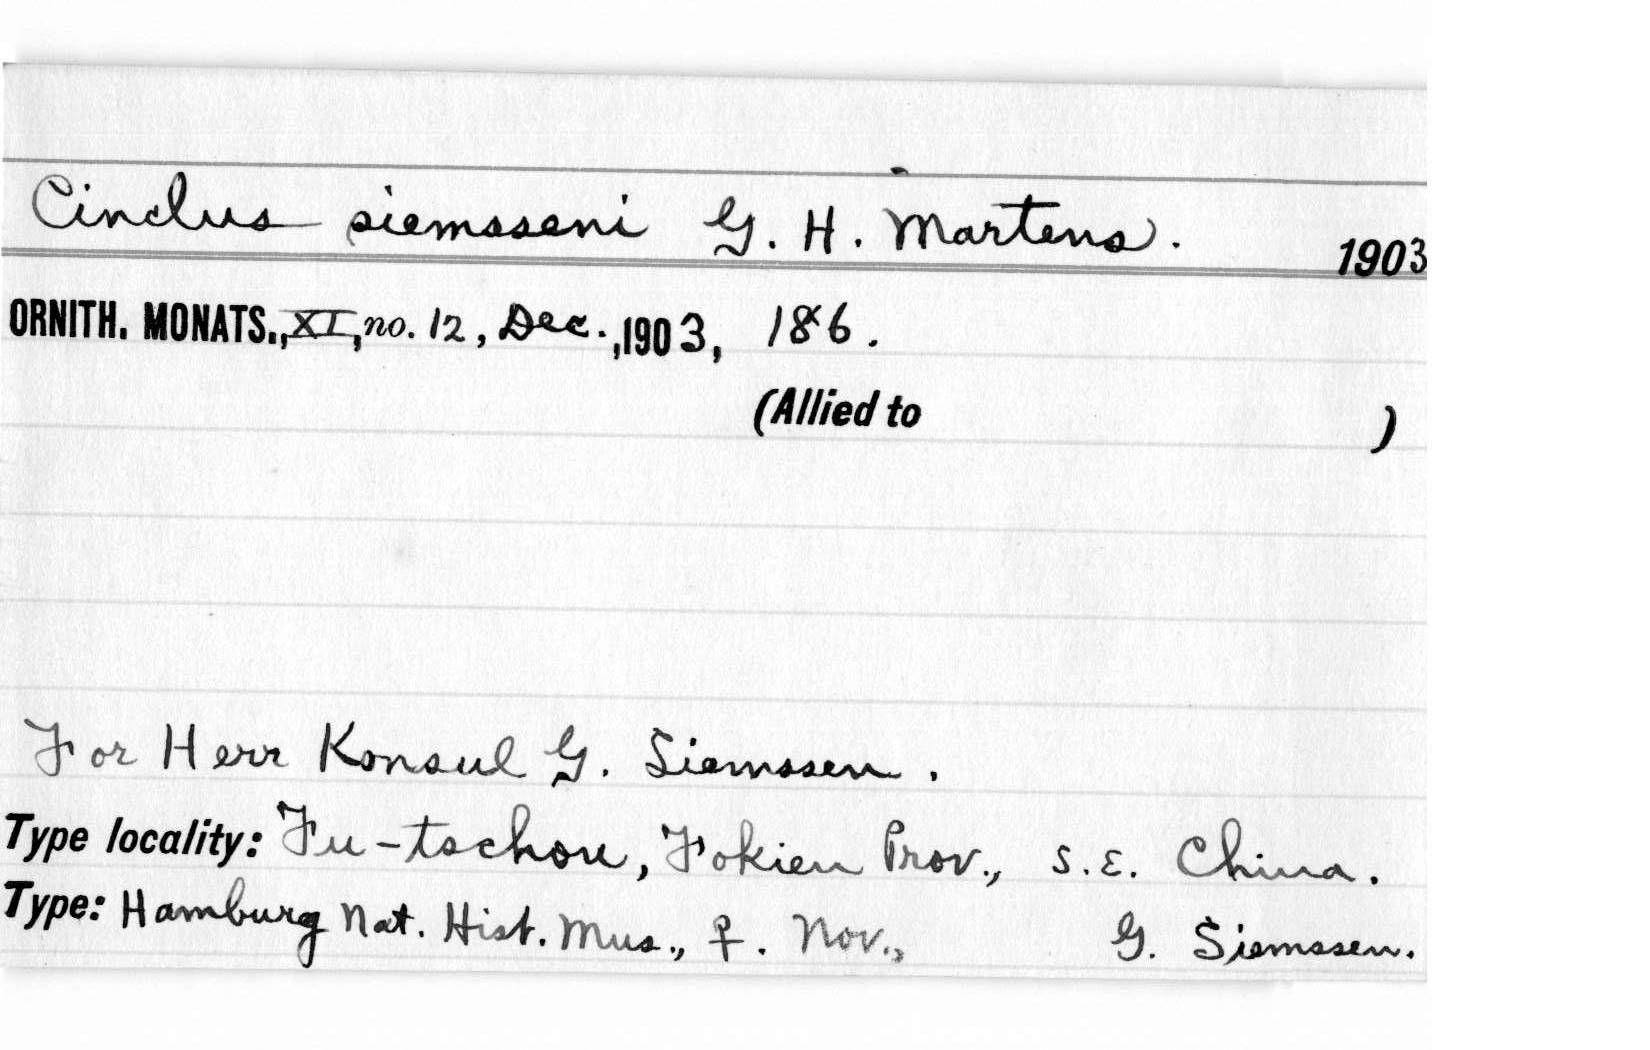 Cinclus siemsseni G. H. Martens. 1903
ORNITH. MONATS., XI, no. 12, Dec., 1903, 186.
(Allied to )
For Herr Konsul G. Siemssen.
Type locality: Fu-tschou, Fokien Prov., S.E. China.
Type: Hamburg Nat. Hist. Mus., ♀. Nov., G. Siemssen.